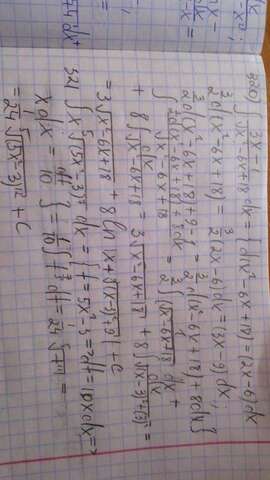 320) ∫ (3x-1)/√(x²-6x+18) dx = { d(x²-6x+18) = (2x-6)dx
3/2 d(x²-6x+18) = 3/2 (2x-6)dx = (3x-9)dx;
3/2 d(x²-6x+18)+9-1 = 3/2 d(x²-6x+18)+8dx }
∫ (3/2 d(x²-6x+18)+8dx)/√(x²-6x+18) = 3/2 ∫ d(x²-6x+18)/√(x²-6x+18) +
+ 8 ∫ dx/√(x²-6x+18) = 3√(x²-6x+18) + 8 ∫ dx/√((x-3)²+(3)²) =
= 3√(x²-6x+18) + 8 ln |x+√((x-3)²+9)| + C
321 ∫ x ⁵√(5x²-3)⁷ dx = { t = 5x²-3 => dt = 10x dx =>
x dx = dt/10 } = 1/10 ∫ t^(7/5) dt = 1/24 ⁵√t¹² =
= 1/24 ⁵√(5x²-3)¹² + C